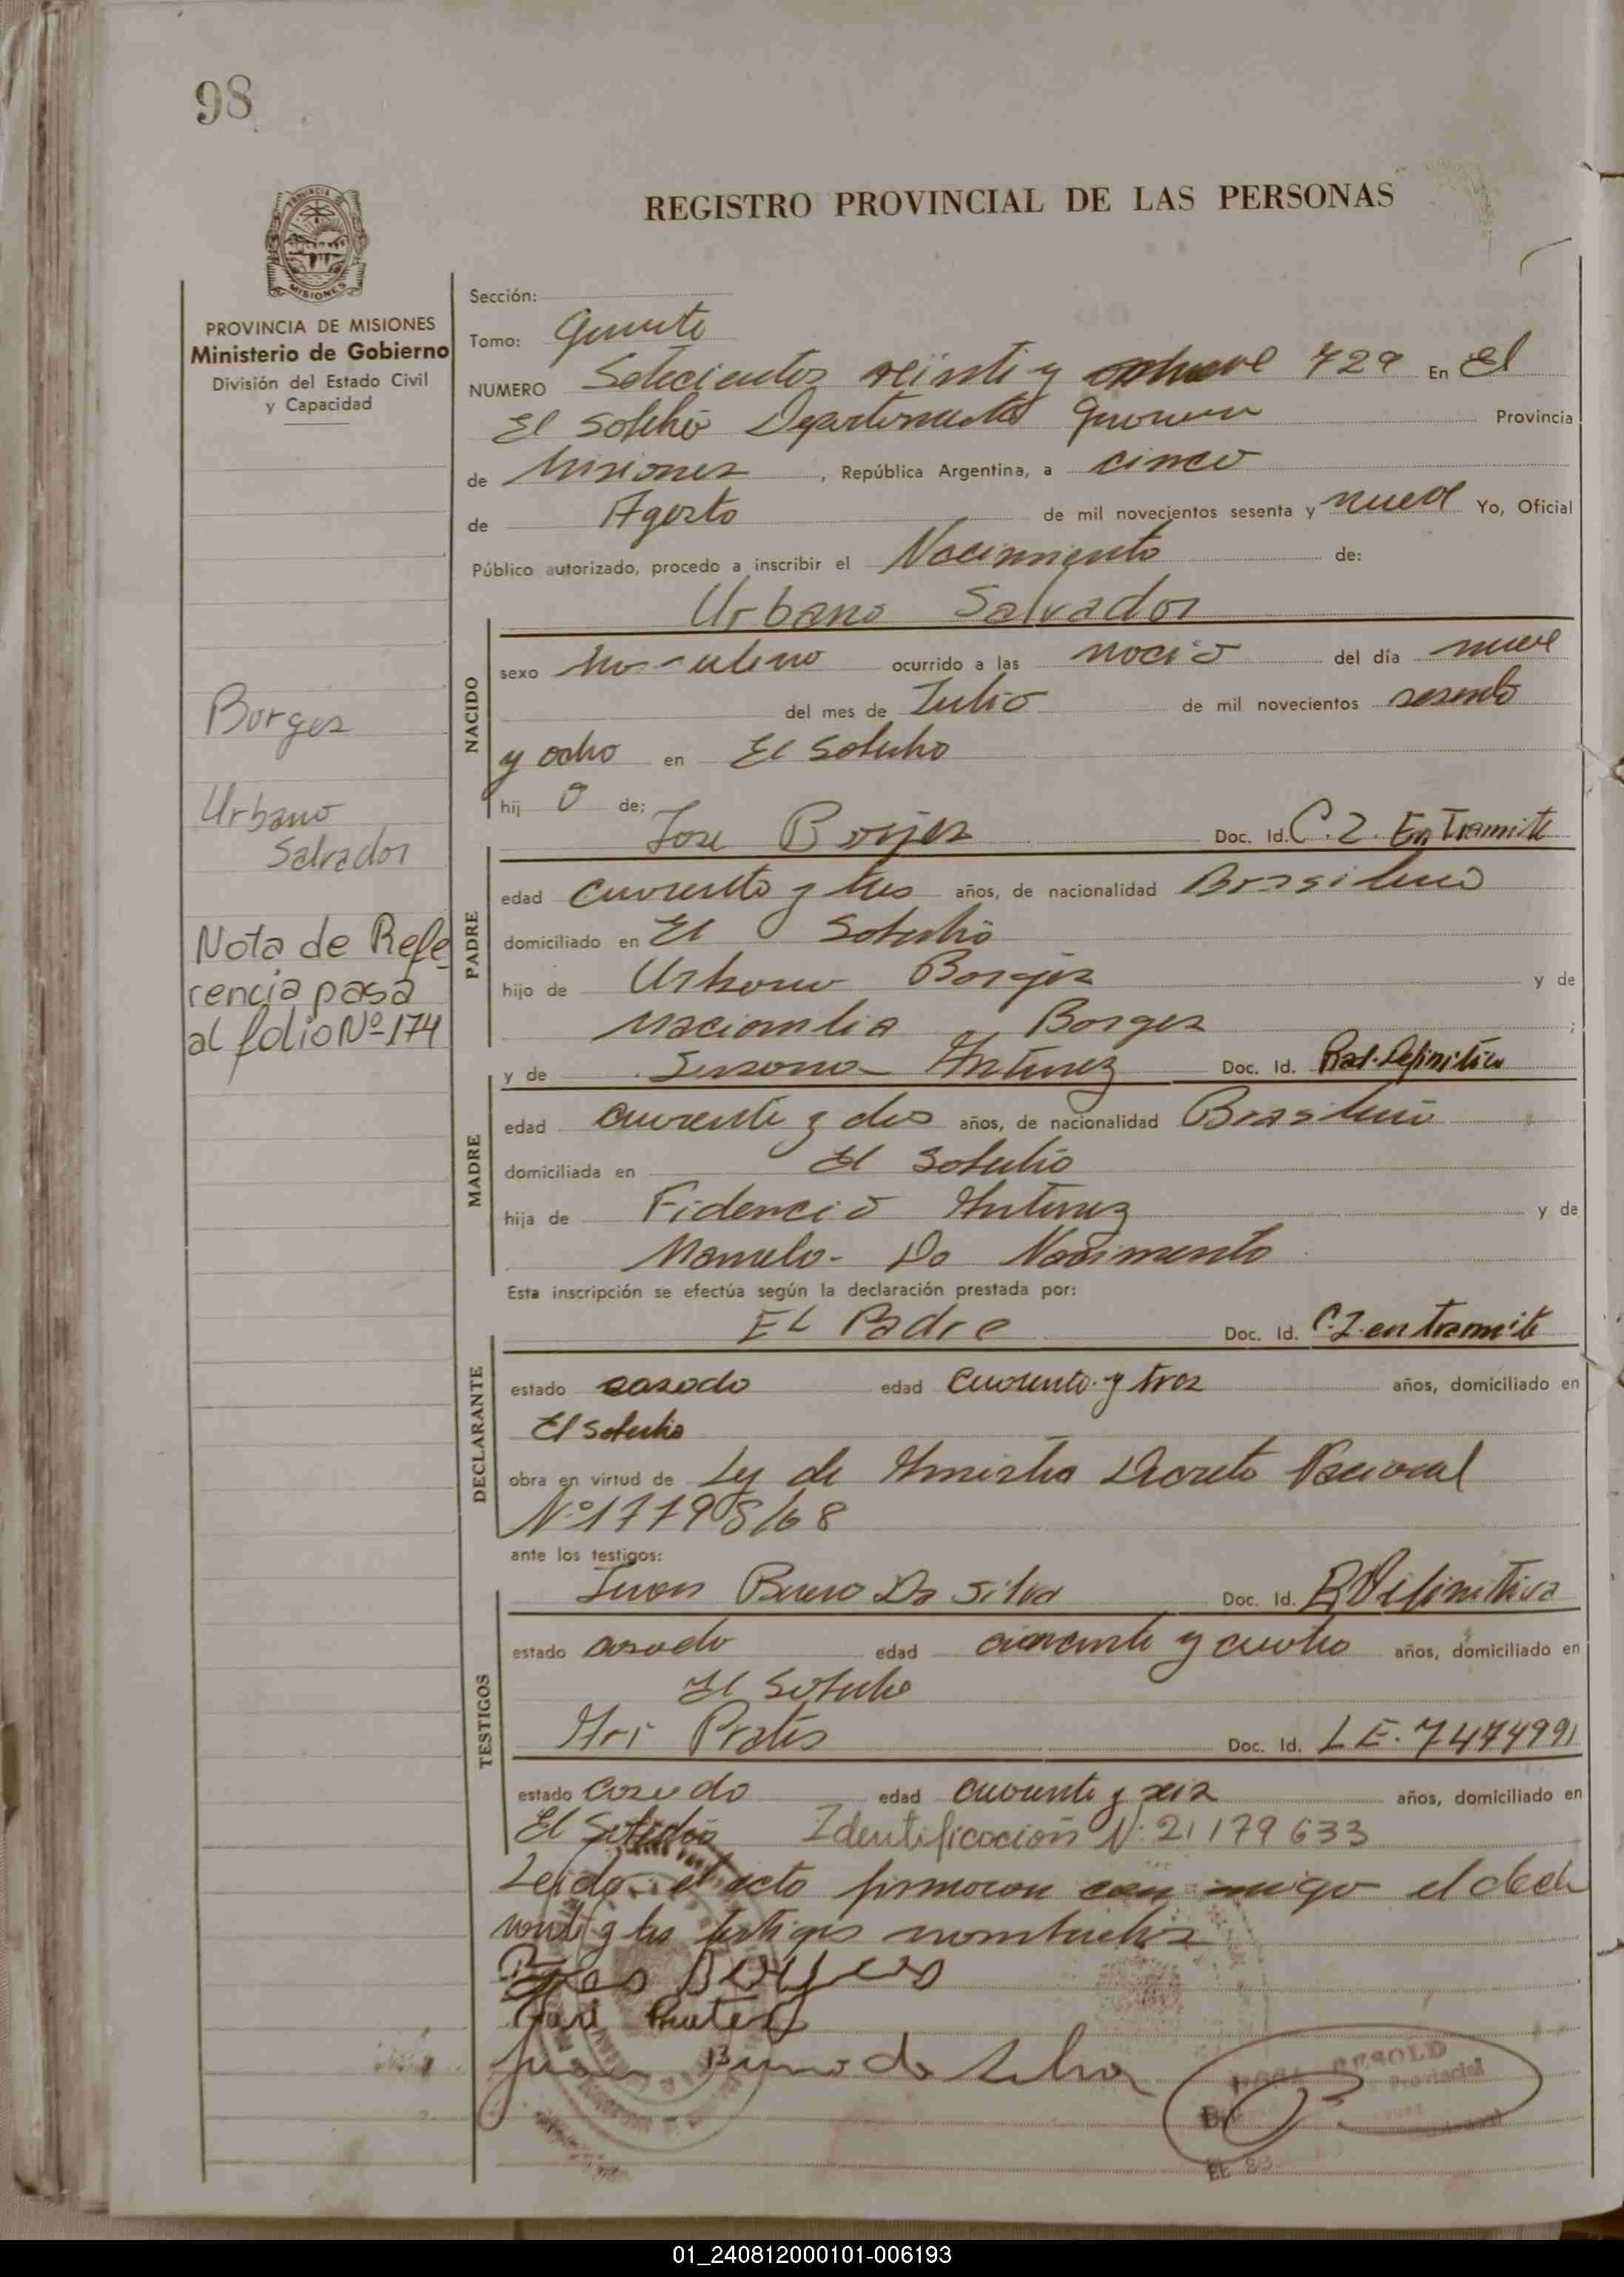 98
REGISTRO PROVINCIAL DE LAS PERSONAS
PROVINCIA DE MISIONES
Ministerio de Gobierno
División del Estado Civil
y Capacidad
Borges
Urbano
Salvador
Nota de Refe
rencia pasa
al folio Nº 174
Sección:
Tomo: Quinto
NUMERO Setecientos veinti y nueve 729 En El
El Soberbio Departamento Guarani Provincia
de Misiones, República Argentina, a cinco
de Agosto de mil novecientos sesenta y nueve Yo, Oficial
Público autorizado, procedo a inscribir el Nacimiento de:
Urbano Salvador
NACIDO
sexo Masculino ocurrido a las nació del día nueve
del mes de Julio de mil novecientos sesenta
y ocho en El Soberbio
hij o de;
Jose Borjes Doc. Id. C.I. En Tramite
PADRE
edad cuarenta y tres años, de nacionalidad Brasileno
domiciliado en El Soberbio
hijo de Urbano Borges y de
Borges ;
y de Susana Antunez Doc. Id. Rad. Definitiva
MADRE
edad cuarenta y dos años, de nacionalidad Brasileña
domiciliada en El Soberbio
hija de Fidencio Antunez y de
Manuela Do Nacimento
Esta inscripción se efectúa según la declaración prestada por:
EL Padre Doc. Id. C.I. en tramite
DECLARANTE
estado casado edad cuarenta y tres años, domiciliado en
El Soberbio
obra en virtud de Ley de Amnistia Decreto Nacional
Nº 17795/68
ante los testigos:
Juan Bueno Da Silva Doc. Id. R Definitiva
TESTIGOS
estado casado edad y cuatro años, domiciliado en
El Soberbio
Ari Prates Doc. Id. L E. 7474991
estado casado edad cuarenta y seis años, domiciliado en
El Soberbio Identificación Nº 21179633
Leido el acto firmaron con migo el decla
rante y los testigos nombrados
Borges
Ari Prates
Juan Bueno da Silva
01_240812000101-006193